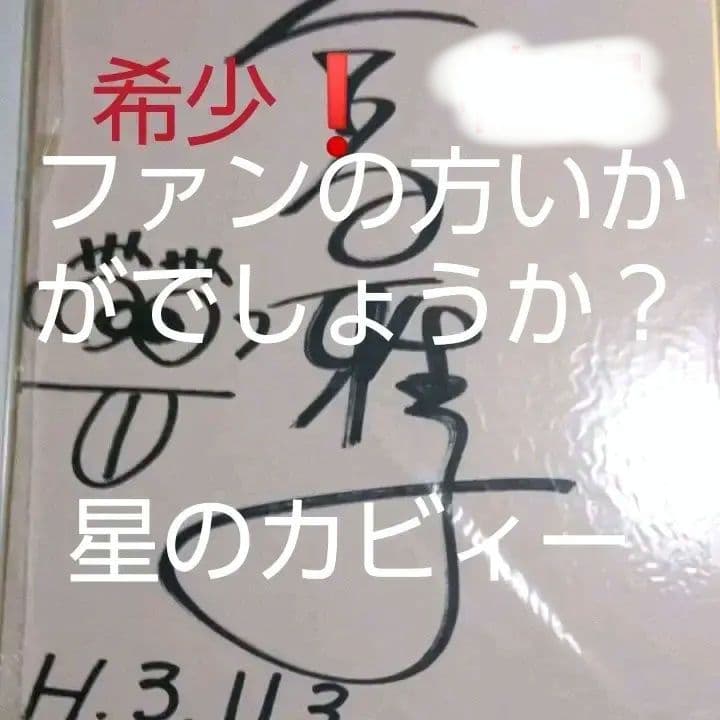 希少❗
ファンの方いか
がでしょうか？
①
星のカビィー
H.3.11.3